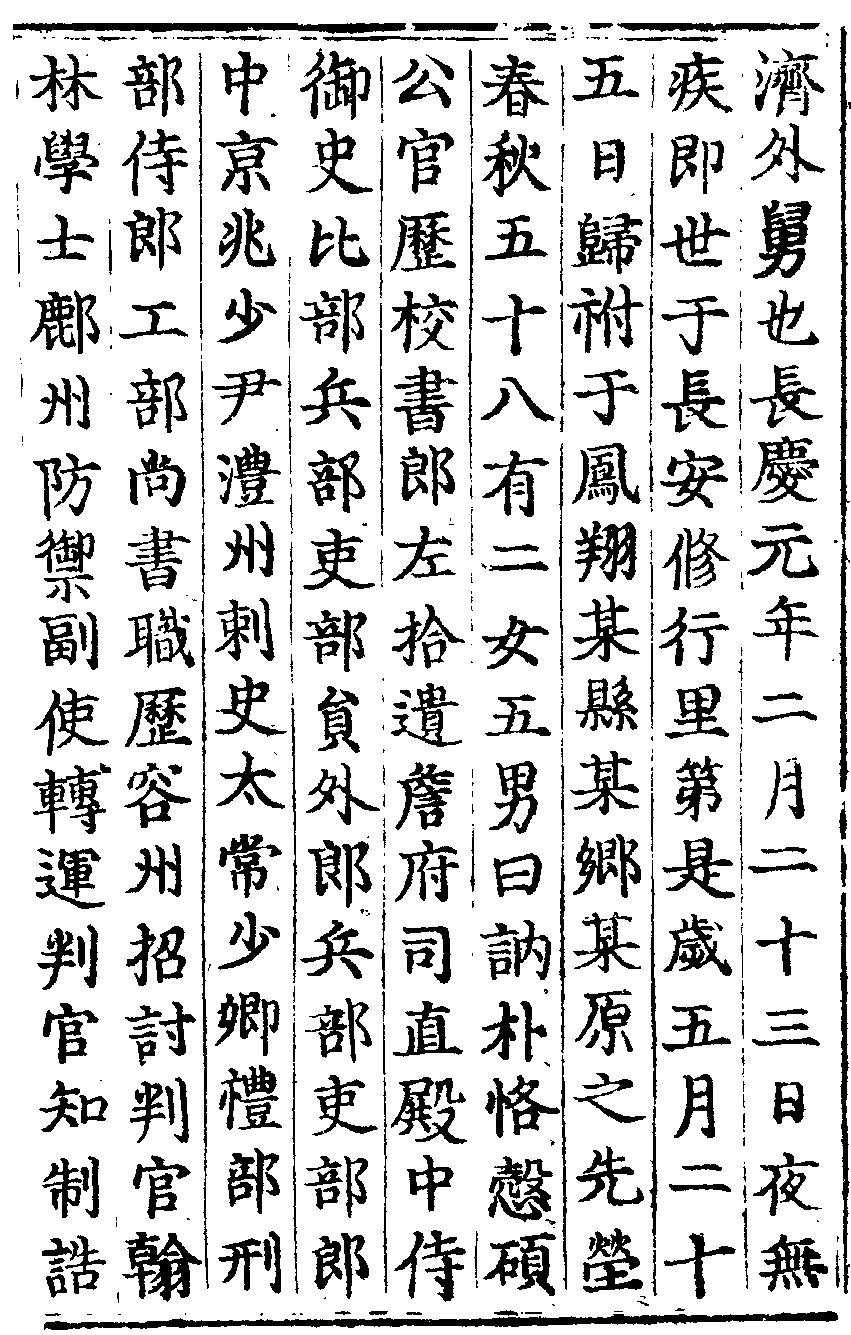 濟外舅也長慶元年二月二十三日夜無
疾即世于長安修行里第是歲五月二十
五日歸祔于鳳翔某縣某鄉某原之先塋
春秋五十八有二女五男曰訥朴恪慤碩
公官歷校書郎左拾遺詹府司直殿中侍
御史比部兵部吏部貟外郎兵部吏部郎
中京兆少尹澧州刺史太常少卿禮部刑
部侍郎工部尚書職歷容州招討判官翰
林學士鄜州防禦副使轉運判官知制誥